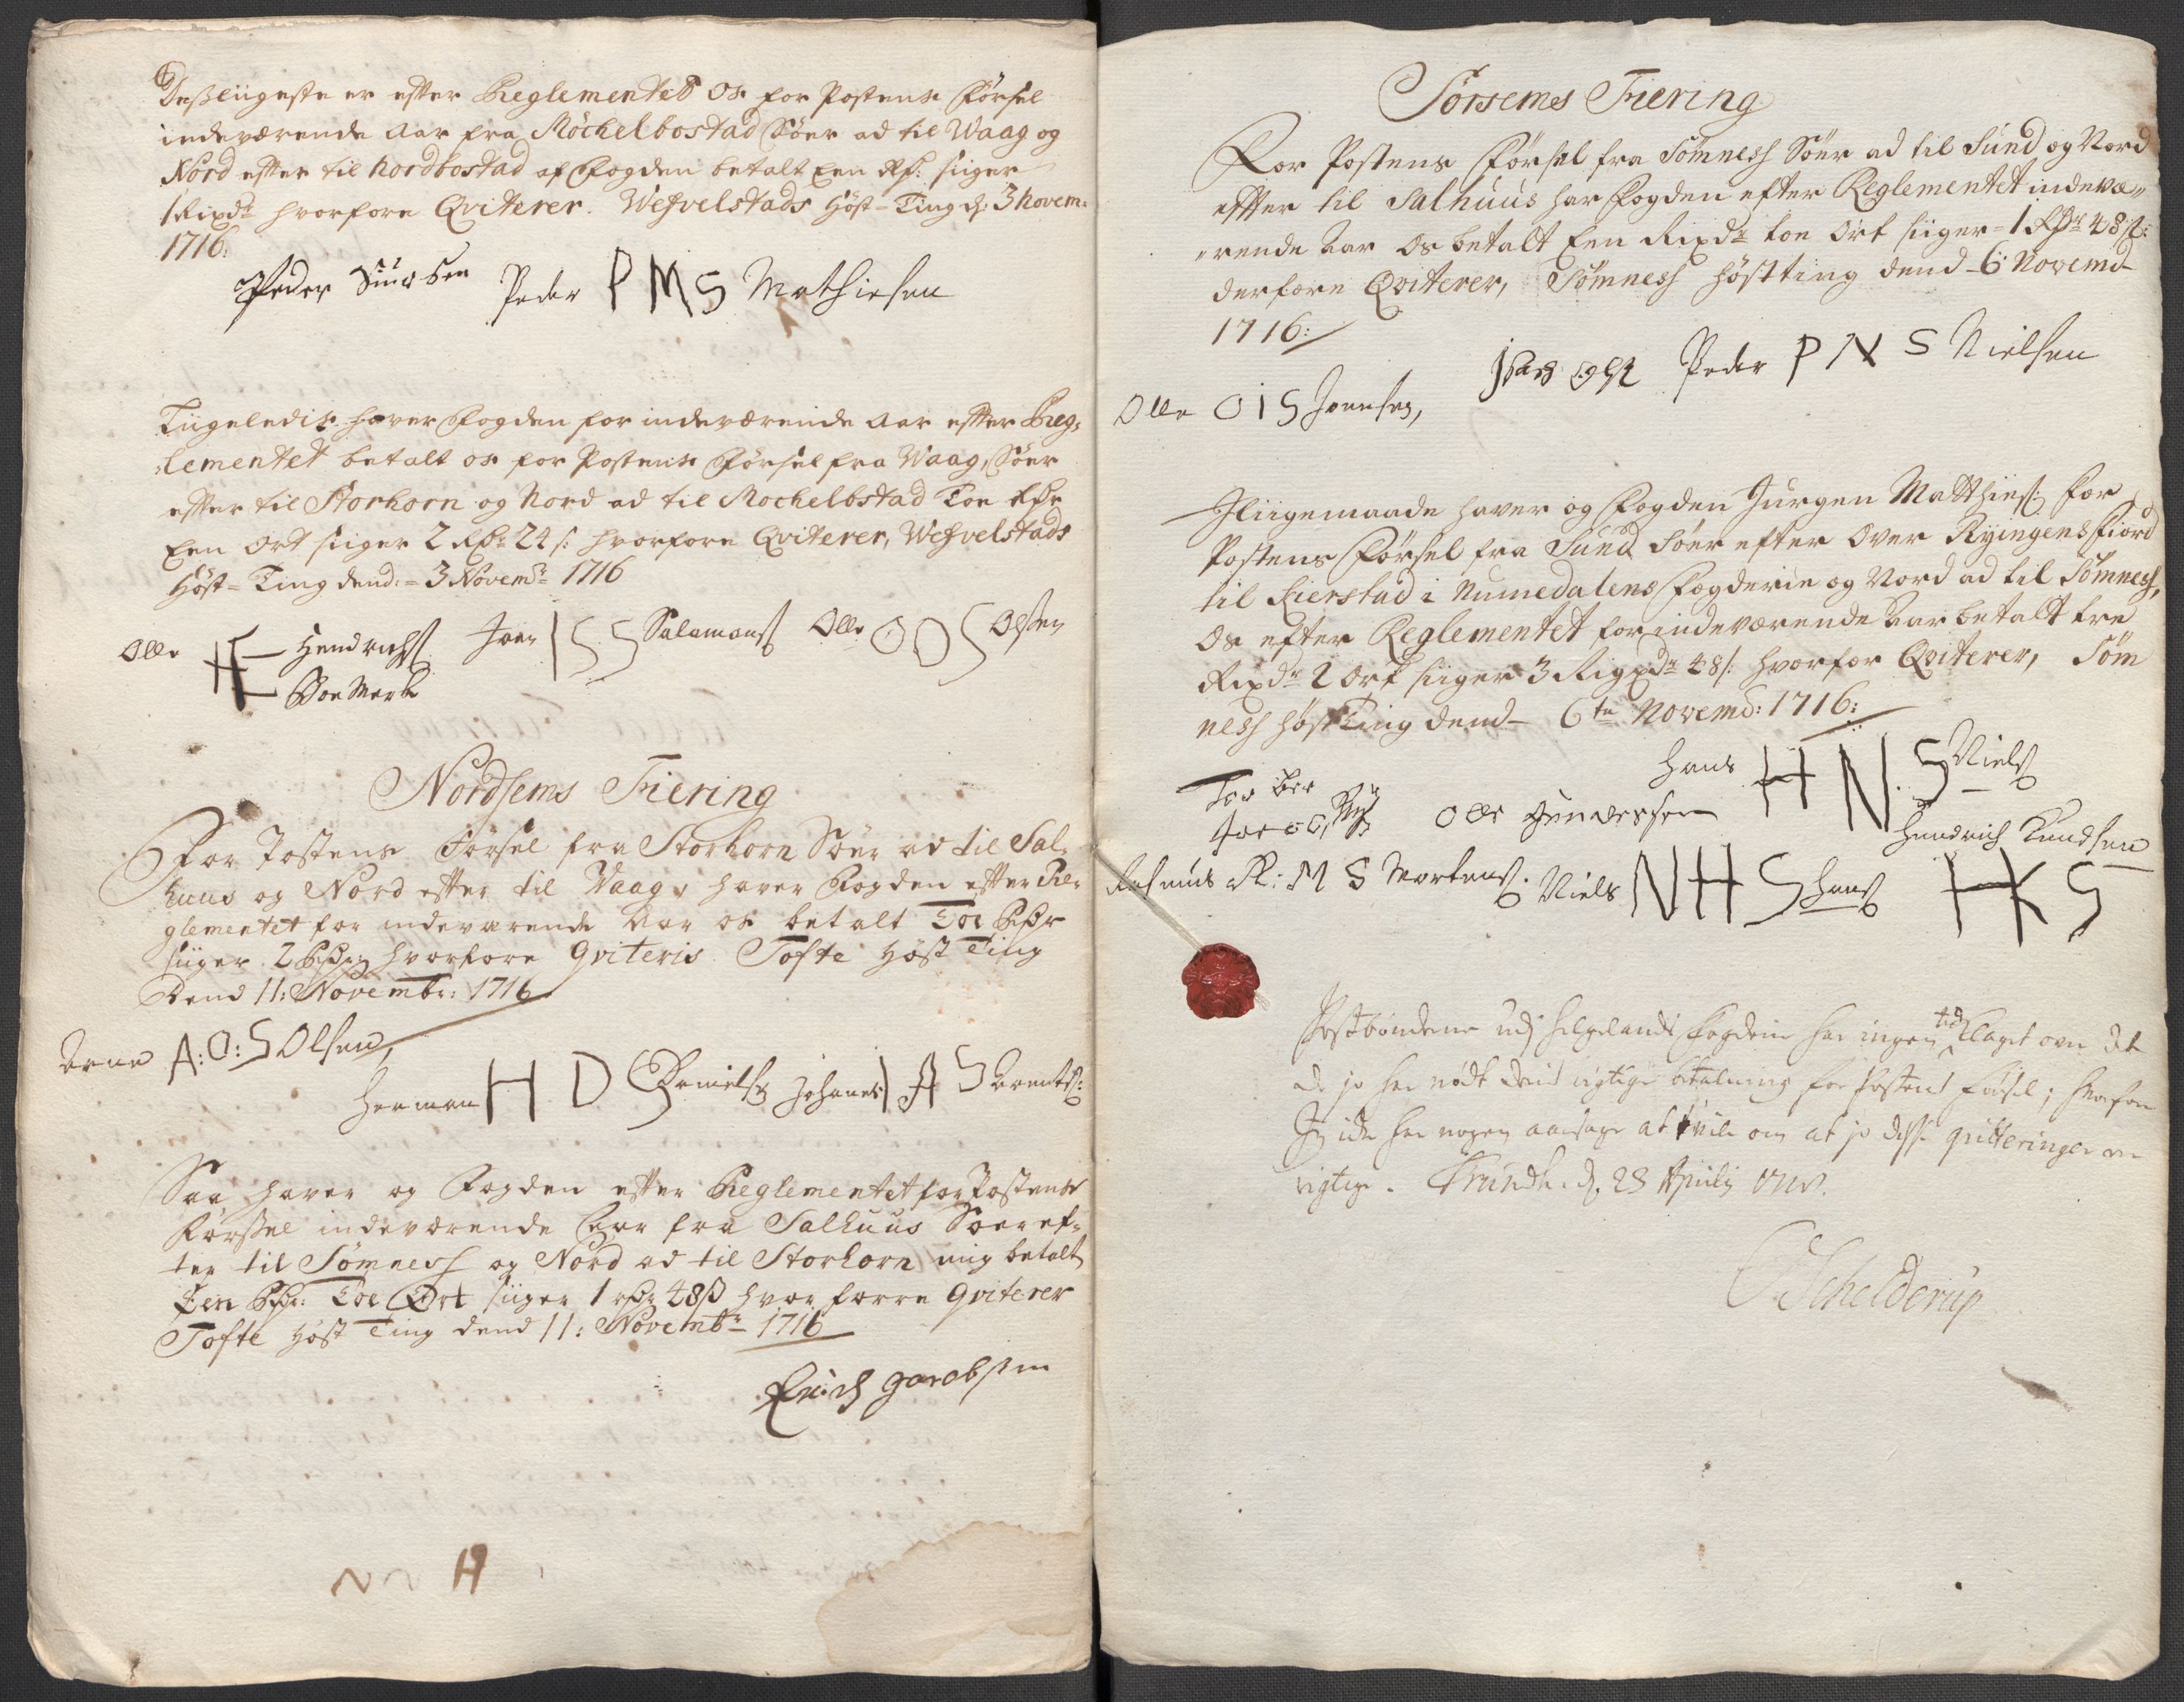 Desliigeste er effter Reglementet os for Postens Førsel
indeværende Aar fra Möchelbostad Söer ad til Waag og
Nord effter til Nordbostad af Fogden betalt Een Rd: siiger
1 Rixdr hvorfore Qviterer. Wefvelstads Höst-Ting d: 3 Novem:
1716:
Peder Siursen Peder PMS Mathiesen
Liigeledis hafver Fogden for indeværende Aar effter Reg-
lementet betalt os for Postens Førsel fra Waag, Söer
effter til Storhorn og Nord ad til Mochelbstad Toe Rdr
Een Ort siiger 2 Rdr 24 s: hvorfore Qviterer, Wefvelstads
Höst-Ting dend: 3 Novemr 1716
Olle H Hendrichs Joen ISS Salamons Olle OOS Olsen
Boe Merke
Nordsems Fiering
For Postens Førsel fra Storhorn Söer ad til Sal-
huus og Nord effter til Vaag, haver Fogden effter Re-
glementet for indeværende Aar os betalt Toe Rdr
siiger 2 Rdr hvorfore Qviteris Tofte Höst Ting
Dend 11: Novembr: 1716
Arne A:O:S Olsen,
Herman HDS Danielsen Johanes IAS Arents:
Saa haver og Fogden effter Reglementet for Postens
Førsel indeværende Aar fra Salhuus Söer ef-
ter til Sömnes og Nord ad til Storhorn mig betalt
Een Rdr: Toe Ort siiger 1 Rdr 48 s hvor forre Qviterer
Tofte Höst Ting dend 11: Novembr 1716
Erich Jacobsen
H
Sörsems Fiering
For Postens Førsel fra Sömness Söer ad til Sund og Nord
effter til Salhuus har Fogden efter Reglementet indevæ-
rende Aar Os betalt Een Rixdr toe Ort siiger 1 Rdr 48 s:
derfore Qviterer, Sömness Höstting dend 6 Novemb
1716:
Peder PNS Nielsen
Olle OIS Joensen,
Iliigemaade haver og Fogden Jürgen Matthies: for
Postens Førsel fra Sund Söer efter Over Ryingens Fiord
til Fierstad i Numedalens Fogderie og Nord ad til Sömness,
Os efter Reglementet for indeværende Aar betalt tre
Rixdr 2 Ort siiger 3 Rigxdr 48 s: hvorfor Qviterer, Söm
ness Höst Ting dend 6te Novemb: 1716:
Hans HNS Niels
Olle Gundersen
Hendrich Knudsen
Rasmus R:M S Mortens. Niels NHS Hans HKS
Postbønderne udj Helgelands Fogderie har ingen tid Klaget over det
de jo har nødt deris rigtige betalning for Postens førsel; hvorfore
Jeg icke har nogen aarsage at tvile om at jo disse qvitteringer er
rigtige. Trundh: d. 23 Aprilis 1717.
Schelderup